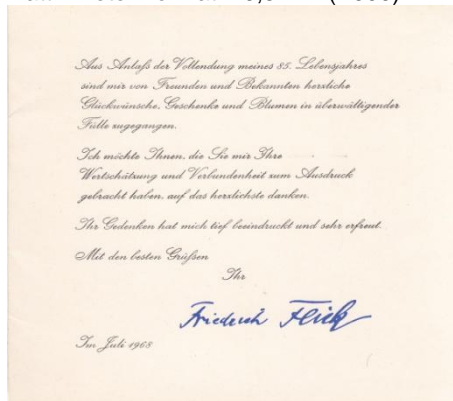 Aus Anlaß der Vollendung meines 85. Lebensjahres
sind mir von Freunden und Bekannten herzliche
Glückwünsche, Geschenke und Blumen in überwältigender
Fülle zugegangen.
Ich möchte Ihnen, die Sie mir Ihre
Wertschätzung und Verbundenheit zum Ausdruck
gebracht haben, auf das herzlichste danken.
Ihr Gedenken hat mich tief beeindruckt und sehr erfreut.
Mit den besten Grüßen
Ihr
Friedrich Flick
Im Juli 1968